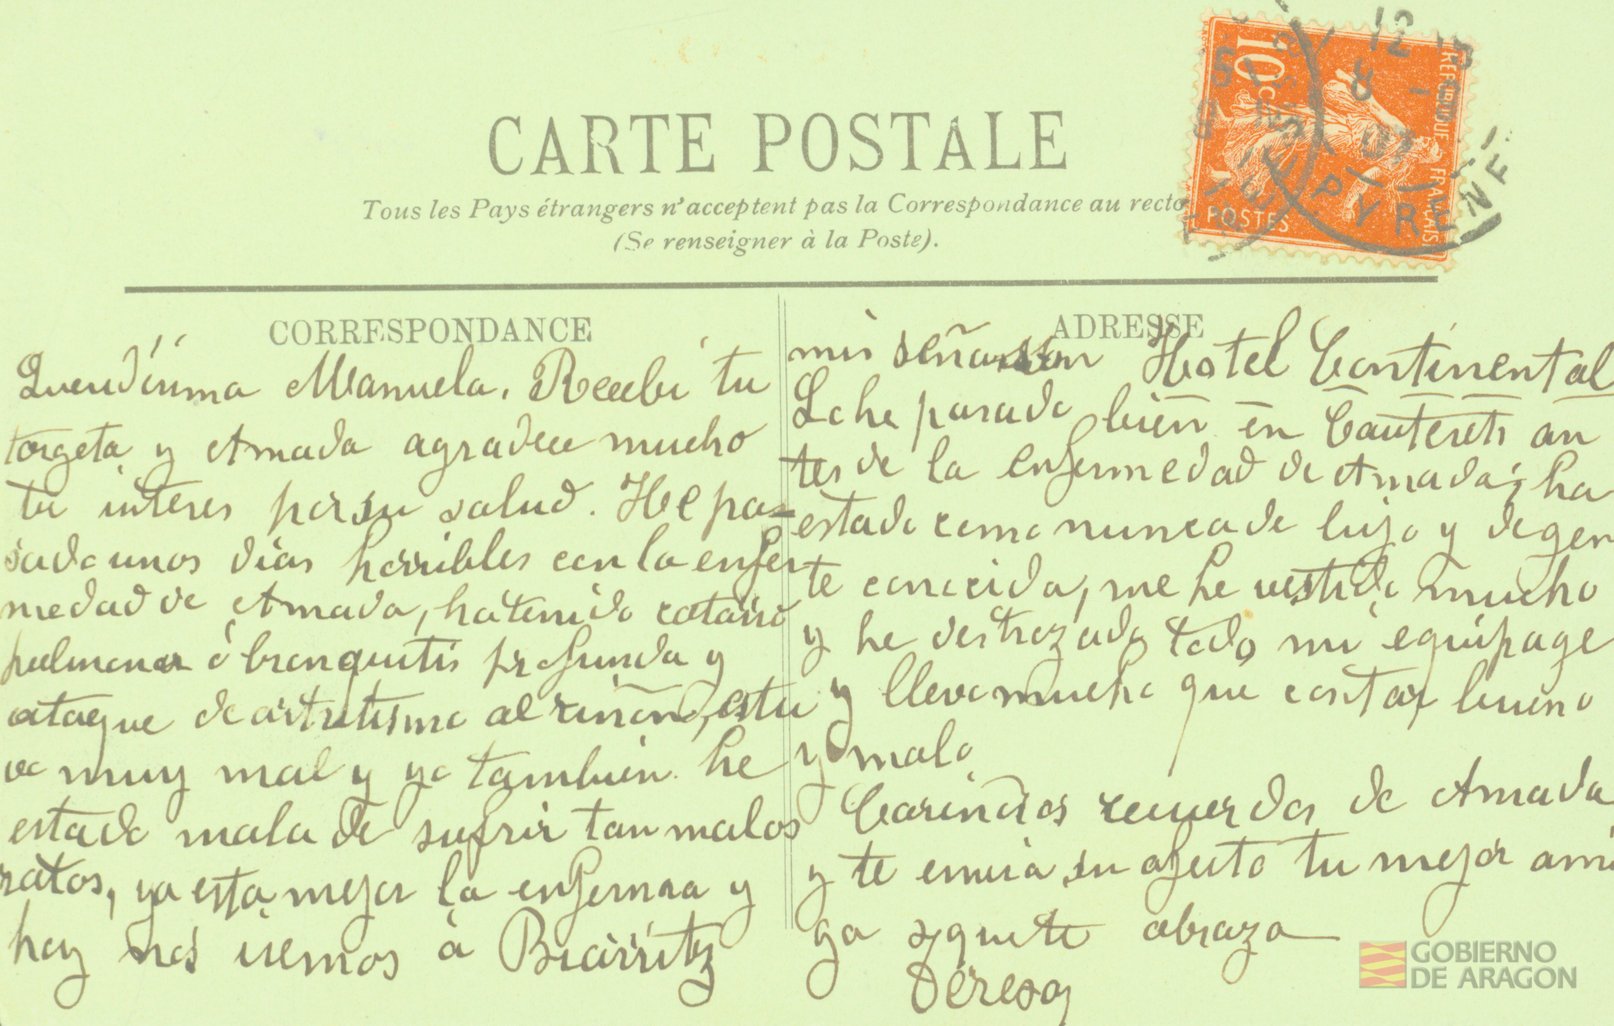 CARTE POSTALE
Tous les Pays étrangers n'acceptent pas la Correspondance au recto
(Se renseigner à la Poste).
10c
REPUBLIQUE FRANÇAISE
POSTES
CORRESPONDANCE
Queridísima Manuela. Recibí tu
targeta y Amada agradece mucho
tu interes por su salud. He pa-
sado unos dias horribles con la enfer
medad de Amada, ha tenido catarro
pulmonar ó bronquitis profunda y
ataque de artritismo al riñon, estu
vo muy mal y yo tambien he
estado mala de sufrir tan malos
ratos, ya esta mejor la enferma y
hoy nos iremos á Biarritz
ADRESSE
mis señas son Hotel Continental
Lo he pasado bien en Cauterets an
tes de la enfermedad de Amada; ha
estado como nunca de lujo y de gen
te conocida, me he vestido mucho
y he destrozado todo mi equipage
y llevo mucho que contar bueno
y malo
Cariñosos recuerdos de Amada
y te envia su afecto tu mejor ami
ga q quete abraza
Teresa
GOBIERNO
DE ARAGON